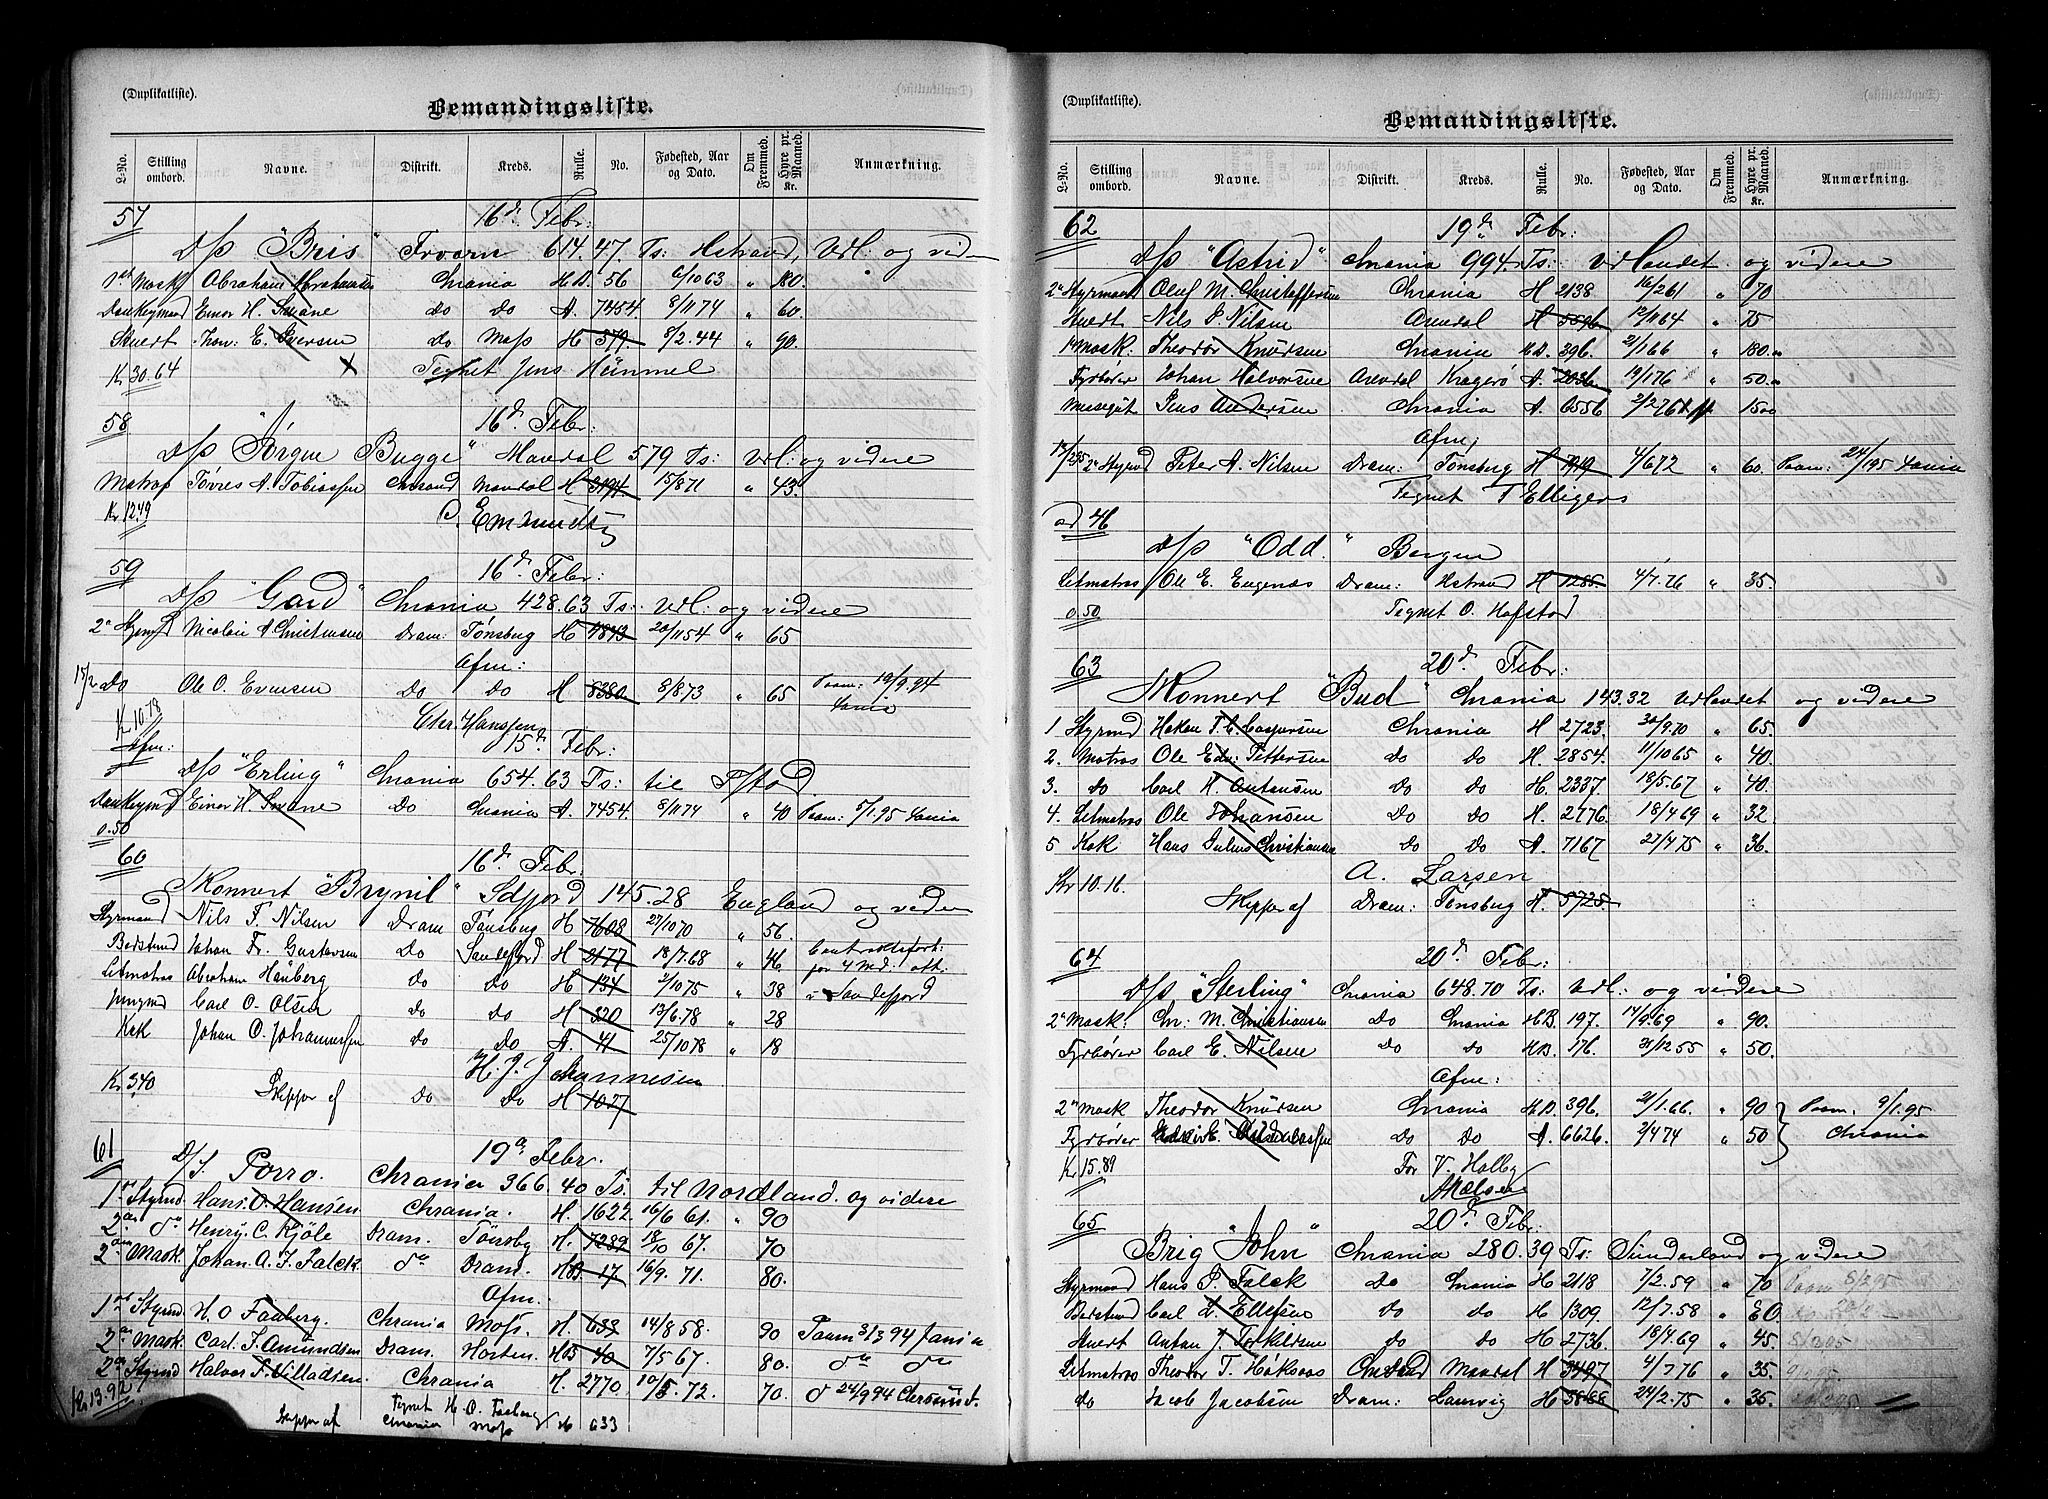 (Duplikatliste).
Bemandingsliste.
L-No. Stilling ombord. Navne. Distrikt. Kreds. Rulle. No. Fødested, Aar og Dato. Om Fremmed. Hyre pr. Maaned. Kr. Anmærkning.
57 16d. Febr:
D/s "Bris" 614.47. Ts: Hstrand, Udl: og vid
1st Mask Abraham Abrahamsen Chrania H.B. 56 6/10 63 " 180.
Donkeymand Einar H. Smane do do A. 7454 8/11 74 " 60.
Stuert E. Iversen do Moss H 379 8/2.44 " 90.
Kr 30.64 Tegnet Jens Hümmel
58 16d. Febr:
D/s "Jørgen Bugge" Mandal 579 Ts: Udl: og videre
Matros A. Tobiassen Chrsand Mandal H 3194 15/8 71 " 43.
Kr 12.49
59 16d. Febr:
D/s "Gard" Chrania 428.63 Ts: Udl: og videre
2n Styrmd Nicolai A. Christensen Dram: Tønsberg H 4843 20/11 54 " 65
Afm:
17/2 Do Ole O. Evensen Do Do H 8380 8/8 73 " 65 Paam: 19/9.94
Kr 10.78 Chr. Hanssen
Afm: 15d. Febr:
D/s "Erling" Chrania 654.63 Ts: til Fstad.
Donkeymd Einar H. Smane Do Chrania A. 7454 8/11 74 " 40 Paam: 5/1.95
0.50
60 16d. Febr:
Skonnert "Brynil" Sdfjord 145.28 England og videre
Styrmand Nils F. Nilsen Dram Tønsberg H 7608 27/10 70 " 56.
Bedstmd Johan Fr. Gustavsen Do Sandefjord H 2177 18/7.68 " 46
Letmatros Abraham Hauberg do do H 134 2/10 75 " 38 i Sandefjord
Jungmd Carl O. Olsen do do H 320 13/6.78 " 28
Kok Johan O. Johannessen do Do A. 41 25/10 78 " 18
H. J. Johannesen
Kr 3.40 Skipper af do Do H 1027
61 19d Febr.
D/S. Porro. Chrania 366.40 Ts. til Nordland. og videre
1st Styrmd Hans. O. Hansen Chrania. H. 1622 16/6 61. " 90
2den do Henry. C. Kjöle Dram. Tönsbg H. 7289 18/10 67. 70
2den Mask Johan. A. F. Falck do Dram. HB 17 16/9. 71. 80.
Afm.
1st Styrmd. H. O Faaberg. Chrania Moss. H. 633 14/8 58. 90 Paam 3/3 94 Xania
2den Mask. Carl. F. Amundsen Dram. Horten. HB 40 7/5 67. 80. do do
2den Styrmd Halvor F. Villadsen. Chrania H. 2770 10/5. 72. 70. do 24/9 94
Kr. 13.92 Tegnet H. O. Faaberg
Skipper af Chrania Moss H 633
(Duplikatliste).
Bemandingsliste.
L-No. Stilling ombord. Navne. Distrikt. Kreds. Rulle. No. Fødested, Aar og Dato. Om Fremmed. Hyre pr. Maaned. Kr. Anmærkning.
62 19de Febr:
D/s "Astrid" Chrania 994. Ts: Udlandet og videre
2n Styrmand Oluf M. Christoffersen Chrania H 2138 16/2 61 " 70
Stuert Nils P. Nilsen Arendal H 5596 12/11 64 " 75
1 Mask: Theodor Knudsen Chrania H.B. 396. 21/1 66 " 180.
Fyrbøder Johan Halvorsen Arendal Kragerø A. 2036 19/1 76 " 50.
Messegut Jens Andersen Chrania A. 6556 2/2 76 15.00
Afm:
2n Styrmd Peter A. Nilsen Dram: Tønsberg H 7919 4/6 72 " 60. Paam: 24/1 95 Xania
Tegnet T Elligers
ad 46
D/s "Odd." Bergen
Letmatros Ole E. Engenes Dram: Hstrand H 1285. 4/7.76 " 35.
0.50 Tegnet O. Hofstad
63 20d. Febr:
Skonnert "Bud" Chrania 143.32 Udlandet og videre
1 Styrmd Hakon T. C. Caspersen Chrania H. 2723. 30/9.70 " 65.
2. Matros Ole Edv: Pettersen do do H. 2854. 11/10 65 " 40.
3. do Carl K. Antonsen Do do H. 2337 18/5.67 " 40.
4. Letmatros Ole Johansen Do do H. 2776. 18/4 69 " 32.
5 Kok Hans Julius Christiansen do do A. 7167 27/4 75 " 36.
Kr 10.16. A. Larsen
Skipper af Dram: Tønsberg H. 5725.
64 20d. Febr:
D/s "Sterling" Chrania 648.70 Ts: Udl: og videre
2n Mask: Chr: M. Christiansen do Chrania H.B. 197. 14/9.69 " 90.
Fyrbøder Carl E. Nilsen Do do H.B. 176. 31/12 55 " 50.
Afm:
2n Mask Theodor Knudsen Chrania H.B. 396. 21/1.66. " 90 Paam: 9/1.95
Fyrbøder Do do A. 6626. 2/4 74 " 50 Chrania
Kr 15.89 For V. Holby
65 20d. Febr:
Brig "John" Chrania 280.39 Ts: Sunderland og videre
Styrmand Hans P. Falck Do Chrania H 2118 7/2.59 " 70 Paam 8/2 95
Bedstmd Carl A. Ellefsen do do H 1309. 12/7.58 " 50.
Stuert Anton J. Torkildsen do do H 2736. 18/4.69 " 45.
Letmatros Theodor T. Hakonas Chrsand Mandal H 3497 4/7.76 " 35.
do Jacob Jacobsen Dram: Laurvig H 3868 24/2.75 " 35.